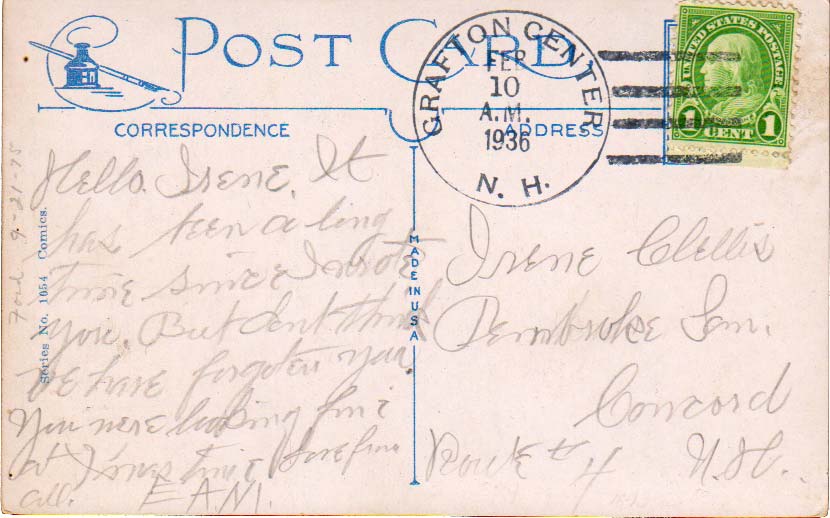 POST CARD
CORRESPONDENCE
ADDRESS
GRAFTON CENTER
FEB
10
A.M.
1936
N. H.
UNITED STATES POSTAGE
1 CENT 1
Hello, Irene, It
has been a long
time since I wrote
you. But dont think
we have forgotten you
You were looking fine
at Xmas time Love from
all. E A M.
MADE IN USA
Irene
Pembroke
Concord
Route # 4 N.H.
Series No. 1054 Comics.
9-21-75